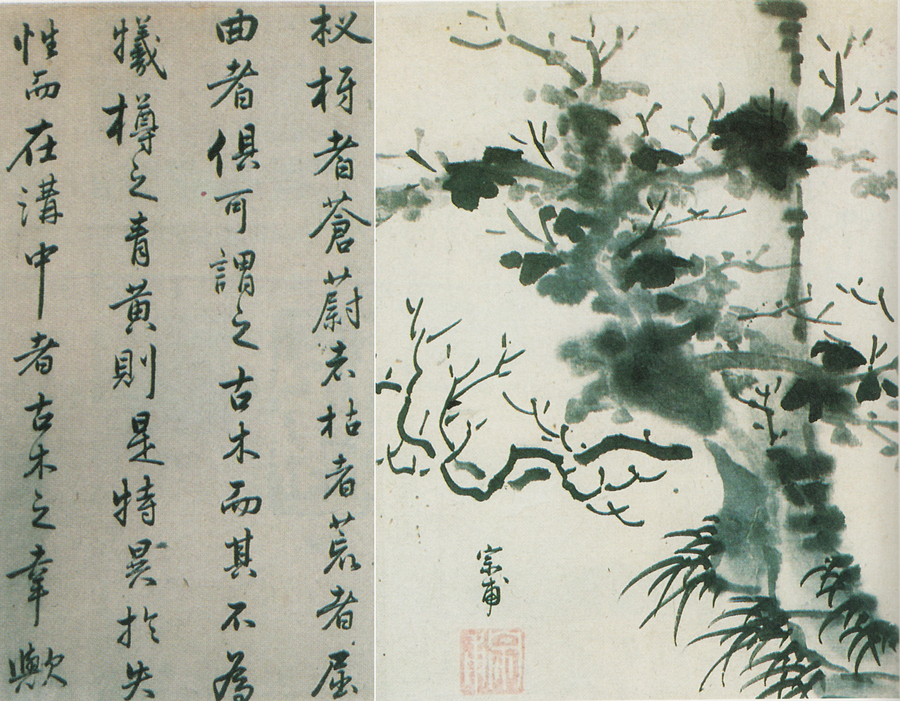 杈枒者蒼蔚者枯者者屈
曲者俱可謂之古木而其不為
犧樽之青黃則是特異於失
性而在溝中者古木之幸歟
宗甫